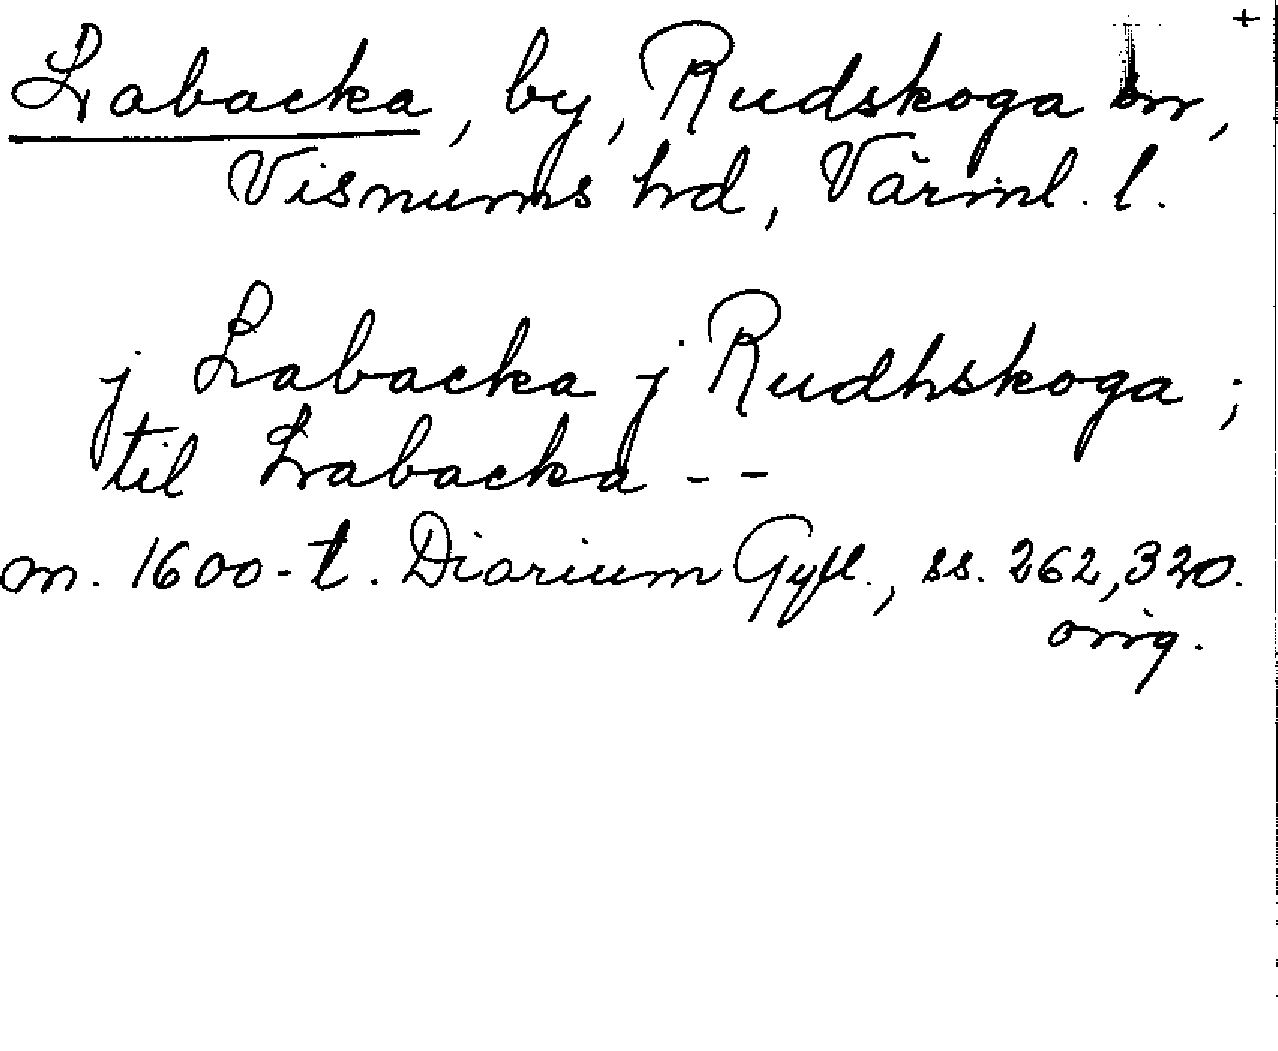 +
Labacka, by, Rudskoga sn,
Visnums hd, Värml. l.
j Labacka j Rudhskoga ;
til Labacka - -
m. 1600-t. Diarium Gyll., ss. 262, 320.
orig.